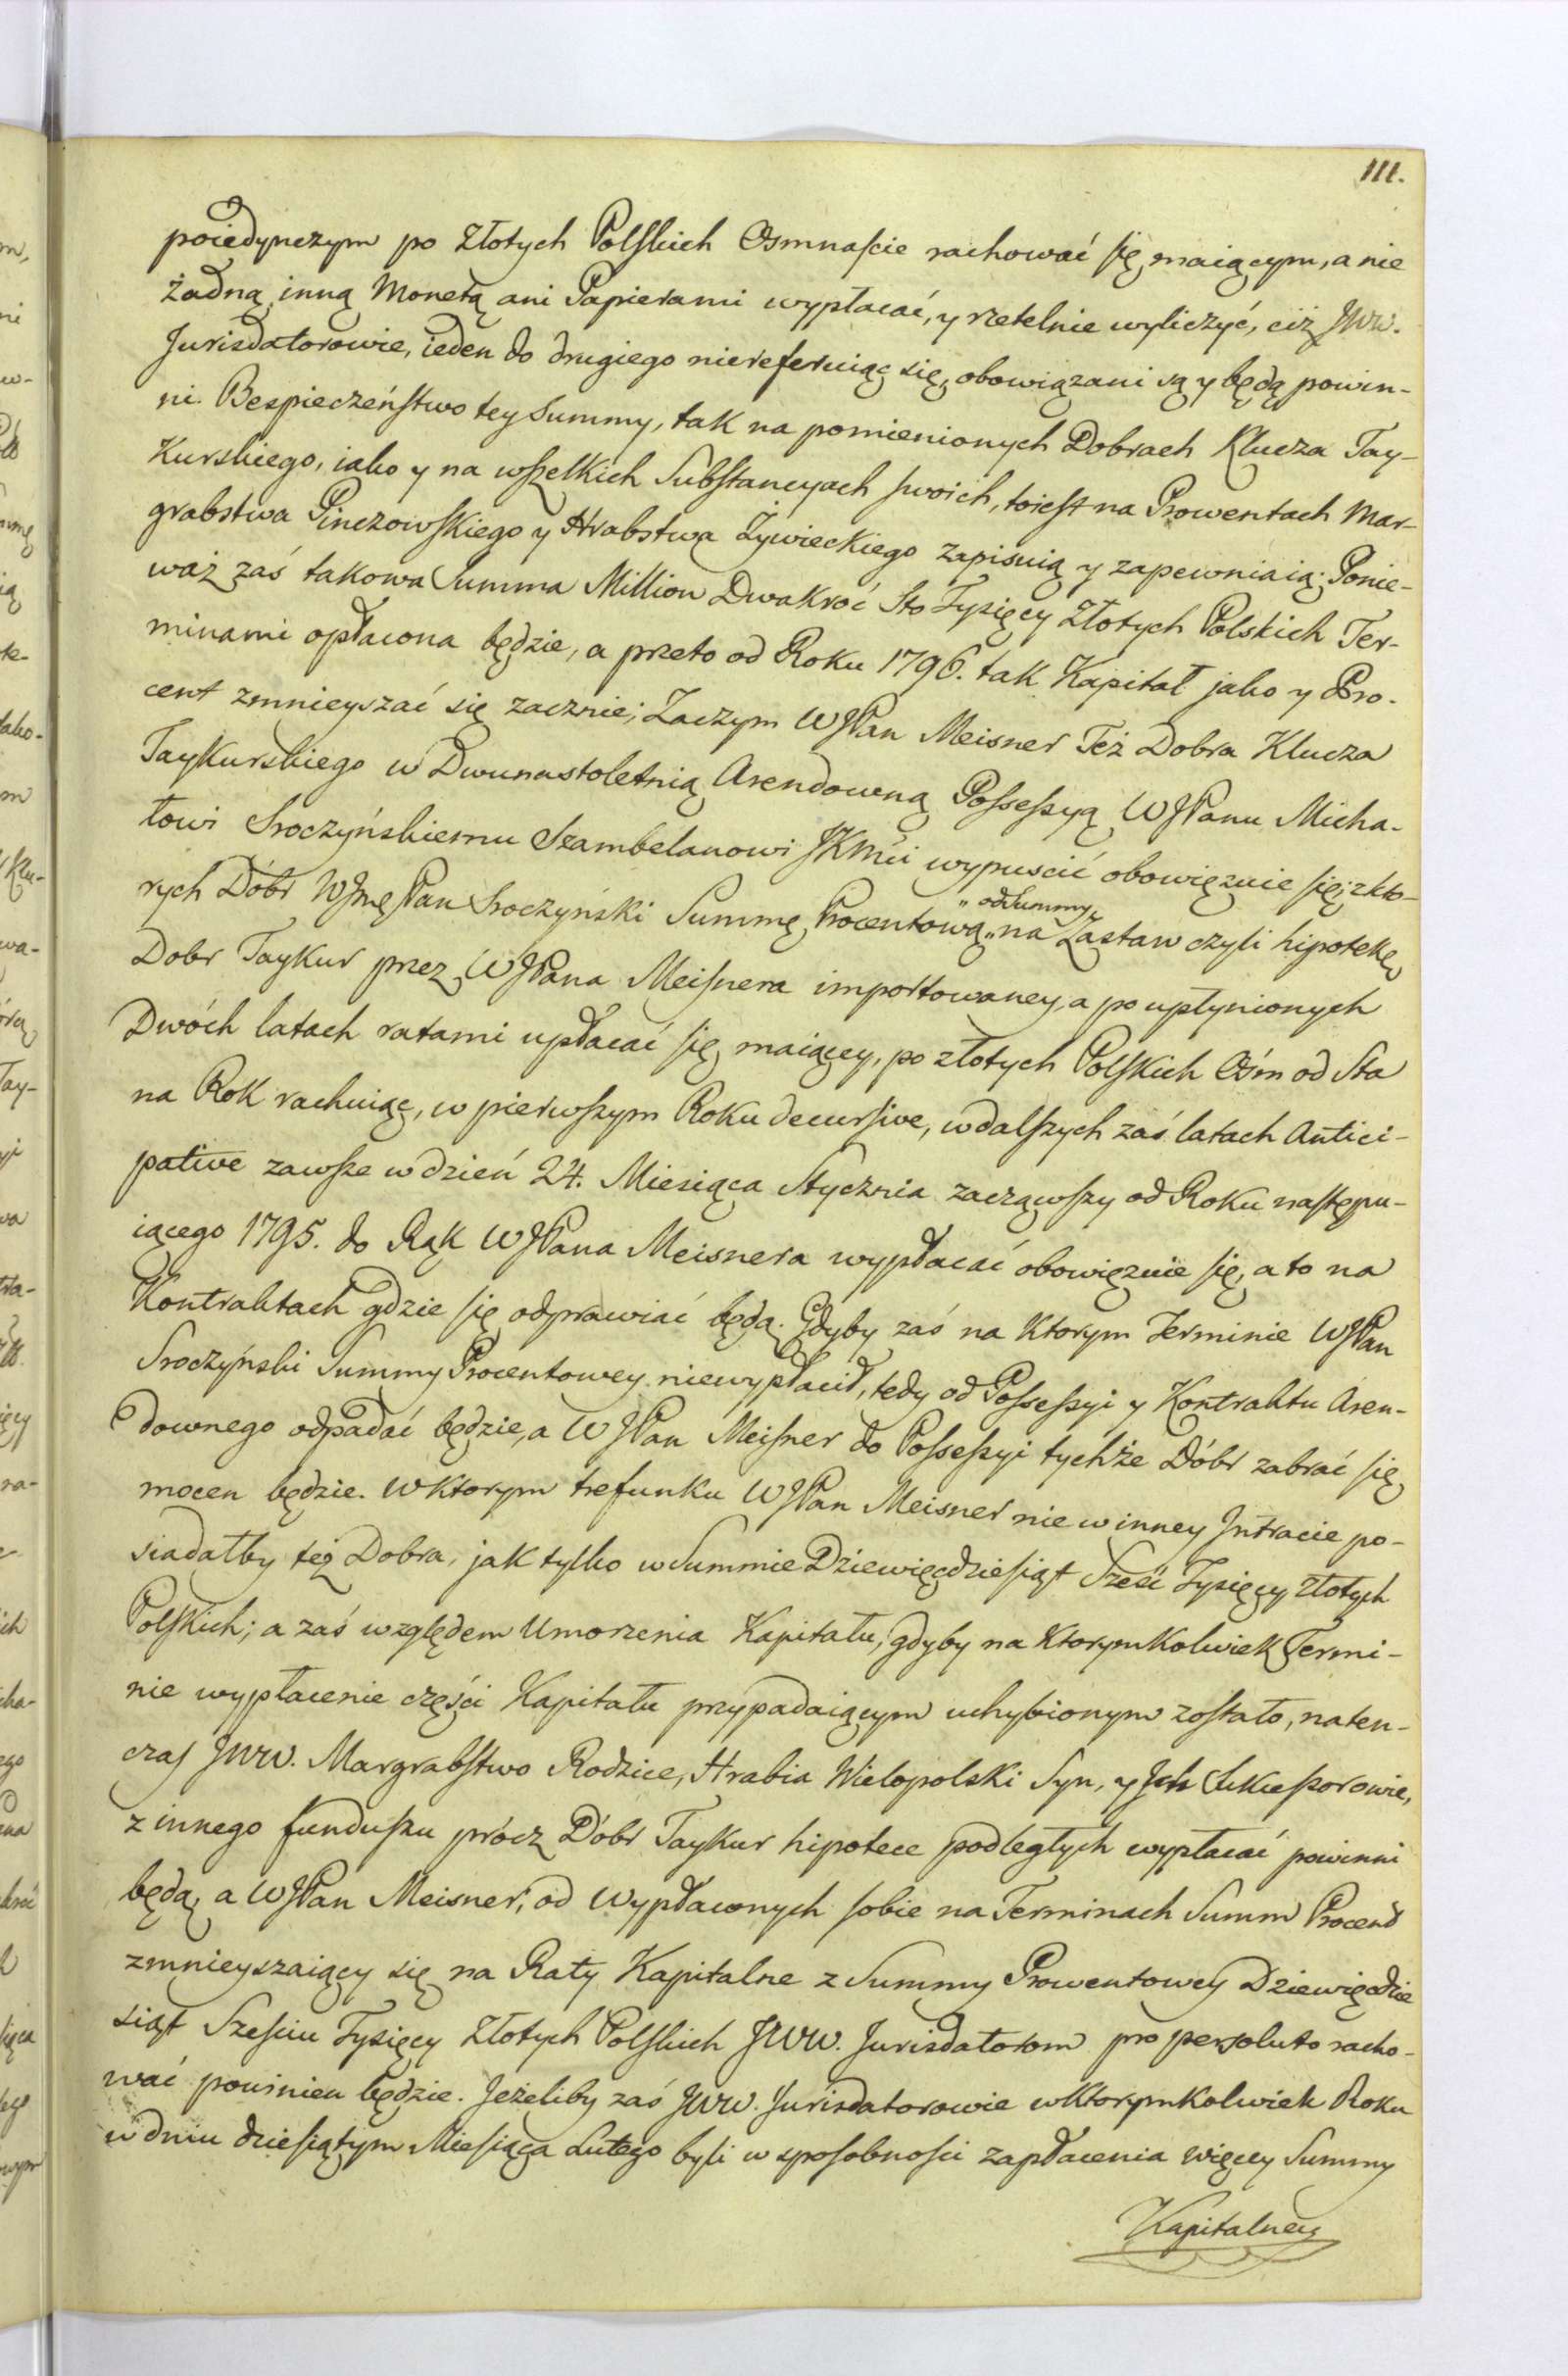 111.
poiedynczym po Złotych Polskich Osmnaście rachować się maiącym, a nie
żadną inną Monetą ani Papierami wypłacać, y rzetelnie wyliczyć, ciż JWW.
Jurisdatorowie, ieden do drugiego niereferuiąc się, obowiązani są y będą powin-
ni. Bespieczeństwo tey Summy, tak na pomienionych Dobrach Klucza Tay-
Kurskiego, iako y na wszelkich Substancyach swoich, toiest na Prowentach Mar-
grabstwa Pinczowskiego y Hrabstwa Żywieckiego zapisuią y zapewniaią; Ponie-
waż zaś takowa Summa Million Dwakroć Sto Tysięcy Złotych Polskich Ter-
minami opłacona będzie, a przeto od Roku 1796. tak Kapitał jako y Pro-
cent zmnieyszać się zacznie; Zaczym WJPan Meisner Też Dobra Klucza
TayKurskiego w Dwunastoletnią Arendowną Possessyą WJPanu Micha-
łowi Sroczyńskiemu Szambelanowi JKMci wypuscić obowięzuie się; z kto-
rych Dóbr WJmć Pan Sroczyński Summę Procentową „na Zastaw czyli hipotekę
„od Summy„
Dobr Taykur przez WJPana Meisnera importowaney, a po upłynionych
Dwóch latach ratami upłacać się maiącey, po złotych Polskich Ośm od Sta
na Rok rachuiąc, w pierwszym Roku decursive, w dalszych zaś latach Antici-
pative zawsze w dzień 24. Miesiąca Stycznia zacząwszy od Roku następu-
iącego 1795. do Rąk WJPana Meisnera wypłacać obowięzuie się, a to na
Kontraktach gdzie się odprawiać będą. Gdyby zaś na Ktorym Terminie WJPan
Sroczyński Summy Procentowey niewypłacił, tedy od Possessyi y Kontraktu Aren-
downego odpadać będzie, a WJPan Meisner do Possessyi tychże Dóbr zabrać się
mocen będzie. W Ktorym trefunku WJPan Meisner nie w inney Jntracie po-
siadałby też Dobra, jak tylko w Summie Dziewięcdziesiąt Sześć Tysięcy Złotych
Polskich; a zaś względem Umorzenia Kapitału, gdyby na KtorymKolwiek Termi-
nie wypłacenie części Kapitału przypadaiącym uchybionym zostało, naten-
czas JWW. Margrabstwo Rodzice, Hrabia Wielopolski Syn, y Jch Sukcessorowie,
z innego funduszu prócz Dóbr Taykur hipotece podległych wypłacać powinni
będą, a WJPan Meisner, od Wypłaconych sobie na Terminach Summ Procent
zmnieyszaiący się na Raty Kapitalne z Summy Prowentowey Dziewięcdzie
siąt Sześciu Tysięcy Złotych Polskich JWW. Jurisdatorom pro persoluto racho-
wać powinien będzie. Jeżeliby zaś JWW. Jurisdatorowie w KtorymKolwiek Roku
w dniu dziesiątym Miesiąca Lutego byli w sposobności zapłacenia więcey Summy
Kapitalney